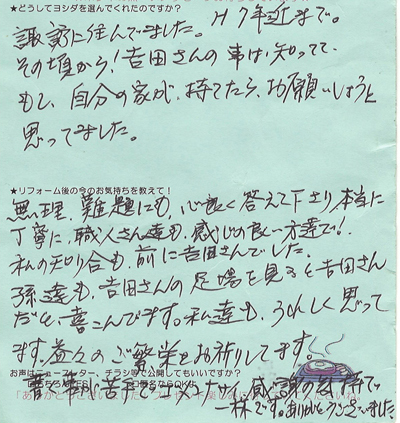 ★どうしてヨシダを選んでくれたのですか？
H7年近まで。
諏訪に住んでました。
その頃から！吉田さんの事は知ってて
もし、自分の家が、持てたら、お願いしようと
思ってました。
★リフォーム後の今のお気持ちを教えて！
無理、難題にも、心良く答えて下さり、本当に
丁寧に、職人さん達も、感じの良い方達で！、
私の知り合も、前に吉田さんでした。
孫達も、吉田さんの足場を見ると吉田さん
だと、喜こんでます。私達も、うれしく思って
ます。益々のご繁栄をお祈りしてます。
お声はニュースレター、チラシ等で公開してもいいですか？
書く事が苦手でゴメンナサイ 感謝の気持で
一杯です。ありがとうございました